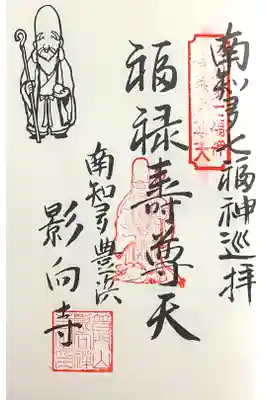 南知多七福神巡拝
福禄寿尊天
南知多豊浜
影向寺